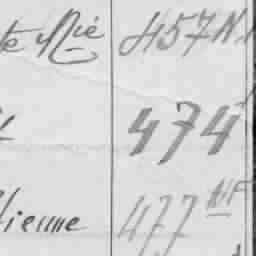 te Mié 457 N.
474
tienne 477 NF